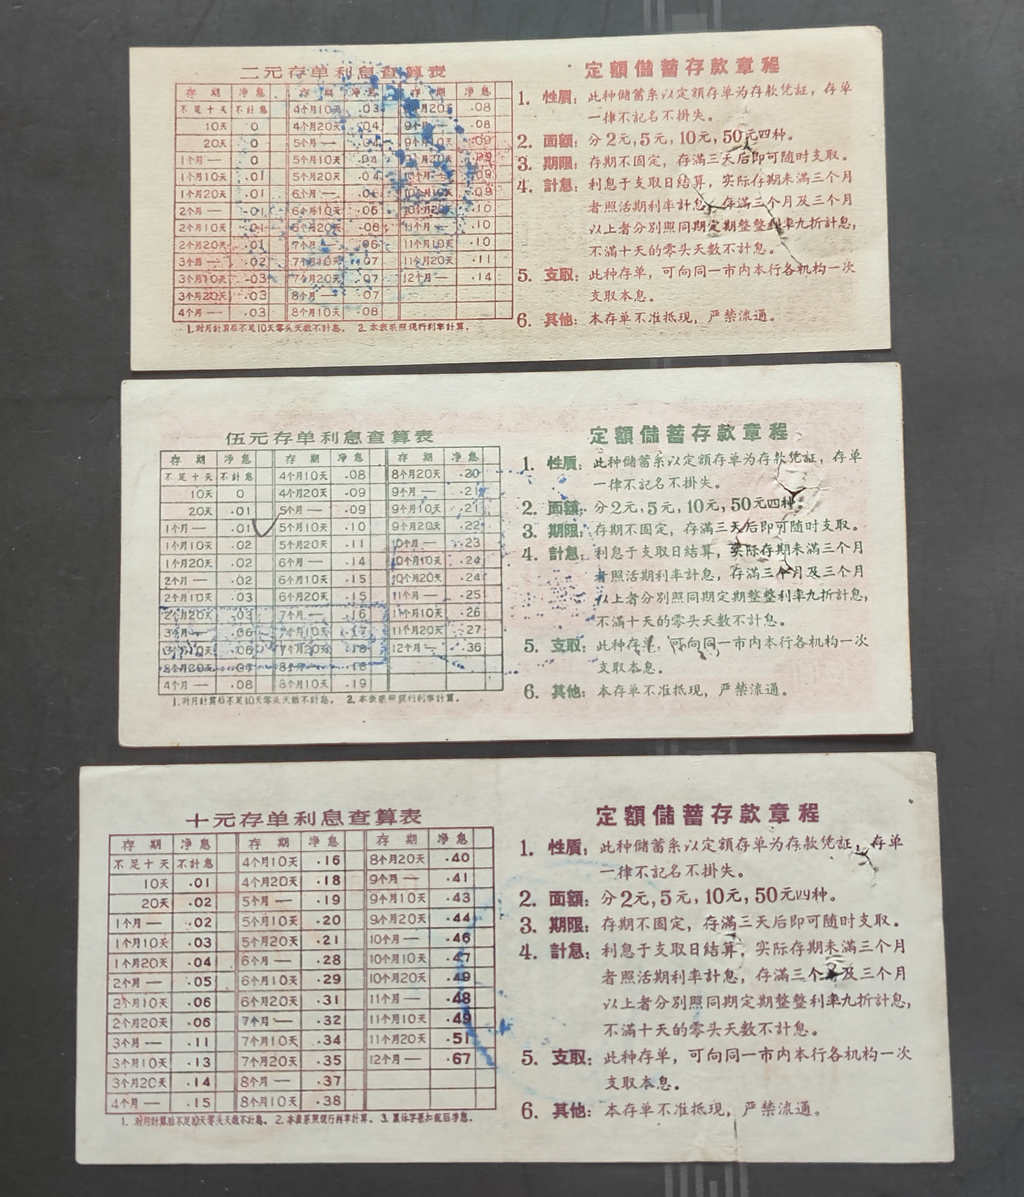 二元存单利息查算表
存期 净息 存期 净息 存期 净息
不足十天 不計息 4个月10天 .03 8个月20天 .08
10天 0 4个月20天 .04 9个月— .08
20天 0 5个月— .04 9个月10天 .09
1个月— 0 5个月10天 .04
1个月10天 .01 5个月20天 .04
1个月20天 .01 6个月—
2个月— .01 6个月10天 .06 10个月20天 .10
2个月10天 .01 6个月20天 .06 11个月— .10
2个月20天 .01 7个月— .06 11个月10天 .10
3个月— .02 7个月10天 .07 11个月20天 .11
3个月10天 .03 7个月20天 .07 12个月— .14
3个月20天 .03 8个月— .07
4个月— .03 8个月10天 .08
1.对月計算后不足10天零头天数不計息。 2.本表系照現行利率計算。
定額儲蓄存款章程
1. 性質：此种儲蓄系以定額存单为存款凭証，存单
一律不記名不掛失。
2. 面額：分2元，5元，10元，50元四种。
3. 期限：存期不固定，存滿三天后即可随时支取。
4. 計息：利息于支取日結算，实际存期未滿三个月
者照活期利率計息，存滿三个月及三个月
以上者分别照同期定期整整利率九折計息，
不滿十天的零头天数不計息。
5. 支取：此种存单，可向同一市内本行各机构一次
支取本息。
6. 其他：本存单不准抵現，严禁流通。
伍元存单利息查算表
存期 净息 存期 净息 存期 净息
不足十天 不計息 4个月10天 .08 8个月20天 .20
10天 0 4个月20天 .09 9个月— .21
20天 .01 5个月— .09 9个月10天 .21
1个月— .01 5个月10天 .10 9个月20天 .22
1个月10天 .02 5个月20天 .11 10个月— .23
1个月20天 .02 6个月— .14 10个月10天 .24
2个月— .02 6个月10天 .15 10个月20天 .24
2个月10天 .03 6个月20天 .15 11个月— .25
2个月20天 .03 7个月— .16 11个月10天 .26
3个月— .06 7个月10天 .17 11个月20天 .27
3个月10天 .06 7个月20天 .18 12个月— .36
3个月20天 8个月— .18
4个月— .08 8个月10天 .19
1.对月計算后不足10天零头天数不計息。 2.本表系照現行利率計算。
定額儲蓄存款章程
1. 性質：此种儲蓄系以定額存单为存款凭証，存单
一律不記名不掛失。
2. 面額：分2元，5元，10元，50元四种。
3. 期限：存期不固定，存滿三天后即可随时支取。
4. 計息：利息于支取日結算，实际存期未滿三个月
者照活期利率計息，存滿三个月及三个月
以上者分别照同期定期整整利率九折計息，
不滿十天的零头天数不計息。
5. 支取：此种存单，可向同一市内本行各机构一次
支取本息。
6. 其他：本存单不准抵現，严禁流通。
十元存单利息查算表
存期 净息 存期 净息 存期 净息
不足十天 不計息 4个月10天 .16 8个月20天 .40
10天 .01 4个月20天 .18 9个月— .41
20天 .02 5个月— .19 9个月10天 .43
1个月— .02 5个月10天 .20 9个月20天 .44
1个月10天 .03 5个月20天 .21 10个月— .46
1个月20天 .04 6个月— .28 10个月10天 .47
2个月— .05 6个月10天 .29 10个月20天 .49
2个月10天 .06 6个月20天 .31 11个月— .48
2个月20天 .06 7个月— .32 11个月10天 .49
3个月— .11 7个月10天 .34 11个月20天 .51
3个月10天 .13 7个月20天 .35 12个月— .67
3个月20天 .14 8个月— .37
4个月— .15 8个月10天 .38
1.对月計算后不足10天零头天数不計息。 2.本表系照現行利率計算。 3.黑体字系扣税后净息。
定額儲蓄存款章程
1. 性質：此种儲蓄系以定額存单为存款凭証，存单
一律不記名不掛失。
2. 面額：分2元，5元，10元，50元四种。
3. 期限：存期不固定，存滿三天后即可随时支取。
4. 計息：利息于支取日結算，实际存期未滿三个月
者照活期利率計息，存滿三个月及三个月
以上者分别照同期定期整整利率九折計息，
不滿十天的零头天数不計息。
5. 支取：此种存单，可向同一市内本行各机构一次
支取本息。
6. 其他：本存单不准抵現，严禁流通。